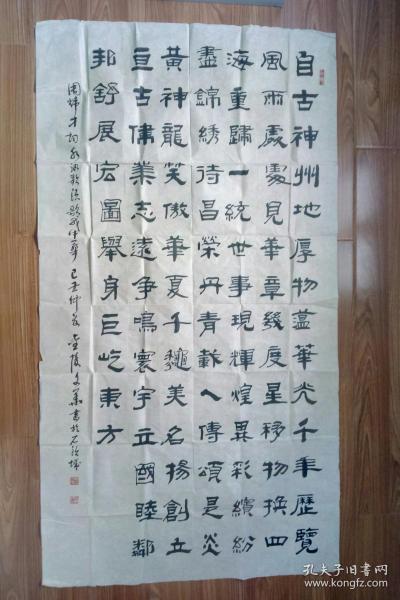 自古神州地厚物蕴華光千年歷覽
風雨處處見華章幾度星移物換四
海重歸一統世事現輝煌異彩繽紛
盡錦绣待昌榮丹青載人傳頌是炎
黃神龍笑傲華夏千秋美名揚創立
亘古偉業志遠争鳴寰宇立國睦鄰
邦舒展宏圖舉身巨屹東方
己丑仲 金陵 書於石
孔夫子旧书网
www.kongfz.com